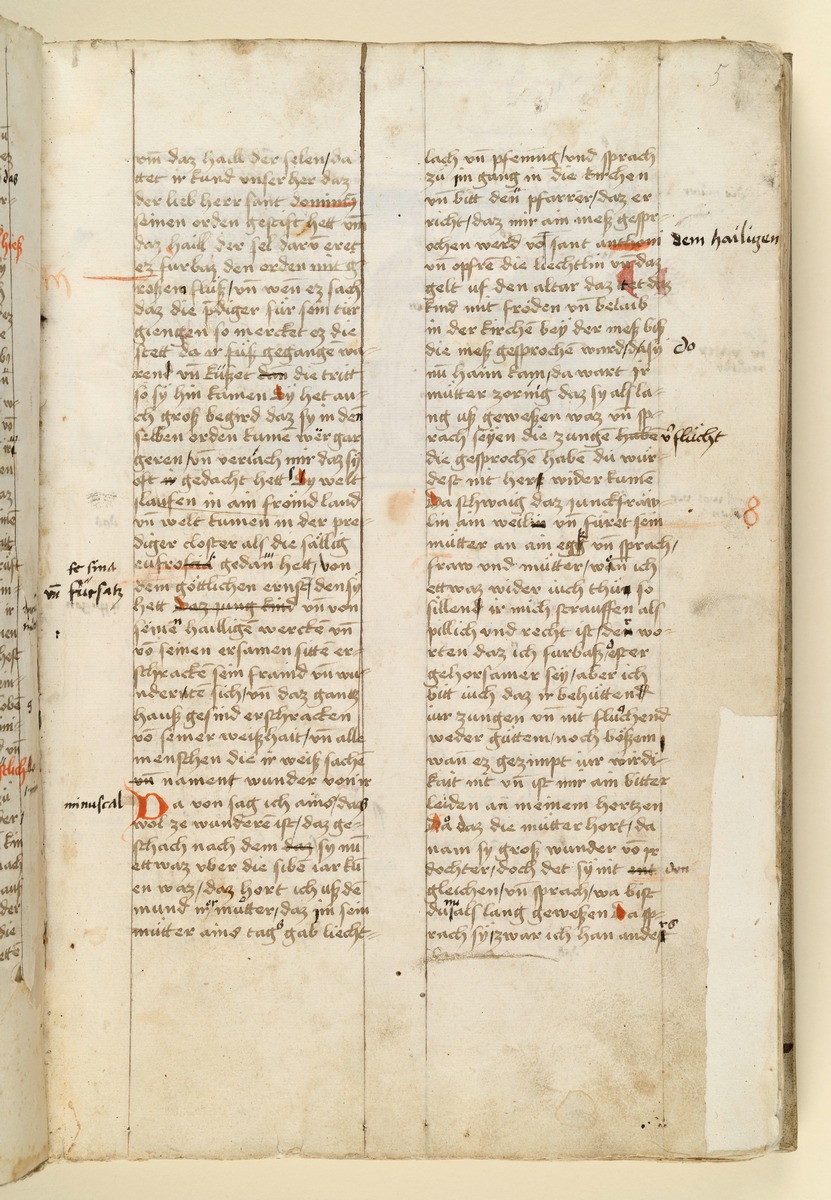 5
vm̄ daz haill der selen / da
tet ir kund unser her daz
der lieb herr sant dominicꝰ
seinen orden gestift hett vm̄
daz haill der sel darv̄ eret
ez furbaz den orden mit g-
rossem fliss / vn̄ wen ez sach
daz die p̄diger für sein tür
giengen so mercket ez die
stett da er fuß gegangē wa-
rent vn̄ kusset dan die tritt
so sy hin kamen Sy het au-
ch groß begird daz sy in den
selben orden kume wer gar
geren / vn̄ veriach mir daz sy
oft ir gedacht hett Sy welt
slaufen in ain frömd land
vn̄ welt kumen in der pre-
diger closter als die sällig
eufrosina gedan hett / von
sc sina
vn̄ fürsatz
dem göttlichen ernst / den sy
hett daz jung kind vn̄ von
seinē hailligen wercken vn̄
vō seinen ersamen sittē er-
schracken sein fraind vn̄ wu-
nderten sich / vn̄ daz gantz
hauß gesind erschracken
vō seiner weißhait / vn̄ alle
menschen die ir weiß sachē
vn̄ nament wunder von ir
minuscal
Da von sag ich ains / daz
wol ze wunderē ist / daz ge-
schach nach dem daz sy nū
ettwaz vber die siben iar kū
en waz / daz hort ich uß dē
mund irer můtter / daz im sein
můtter ains tags gab liecht-
lach vn̄ pfening / vnd sprach
zů im gang in die kirchen
vn̄ bitt den pfarrer / daz er
richt / daz mir ain meß gespr-
ochen werd vō sant anthoni
dem hailigen
vn̄ opfre die liechtlin vn̄ daz
gelt uf den altar daz tet daz
kind mit fröden vn̄ belaib
in der kirchē bey der meß biß
die meß gesprochē ward / da sy
do
nū haim kam / da wart ir
můtter zornig daz sy als la-
ng uß geweßen waz vn̄ sp-
rach seyen die zungē haben
v̓flůcht
die gesprochē haben du wür-
dest nit her wider kumē
Da schwaig daz junckfraw-
lin ain weilin vn̄ füret sein
8
můtter an ain egk vn̄ sprach /
fraw vnd můtter / wan ich
ettwaz wider iuch thůn so
sillend ir mich strauffen als
pillich vnd recht ist / den wo-
rten daz ich furbaß ester
gehorsamer sey / aber ich
bitt iuch daz ir behüttent
iur zungen vn̄ nit flůchend
weder gůttem / noch bößem
wan ez gezimpt iur wirdi-
kait nit vn̄ ist mir ain bitter
leiden an meinem hertzen
Da daz die můtter hort / da
nam sy groß wunder vō ir
dochter / doch det sy nit ent
don
gleichen / vn̄ sprach / wa bist
du nu als lang geweßen Da sp-
rach sy / zwar ich han anders